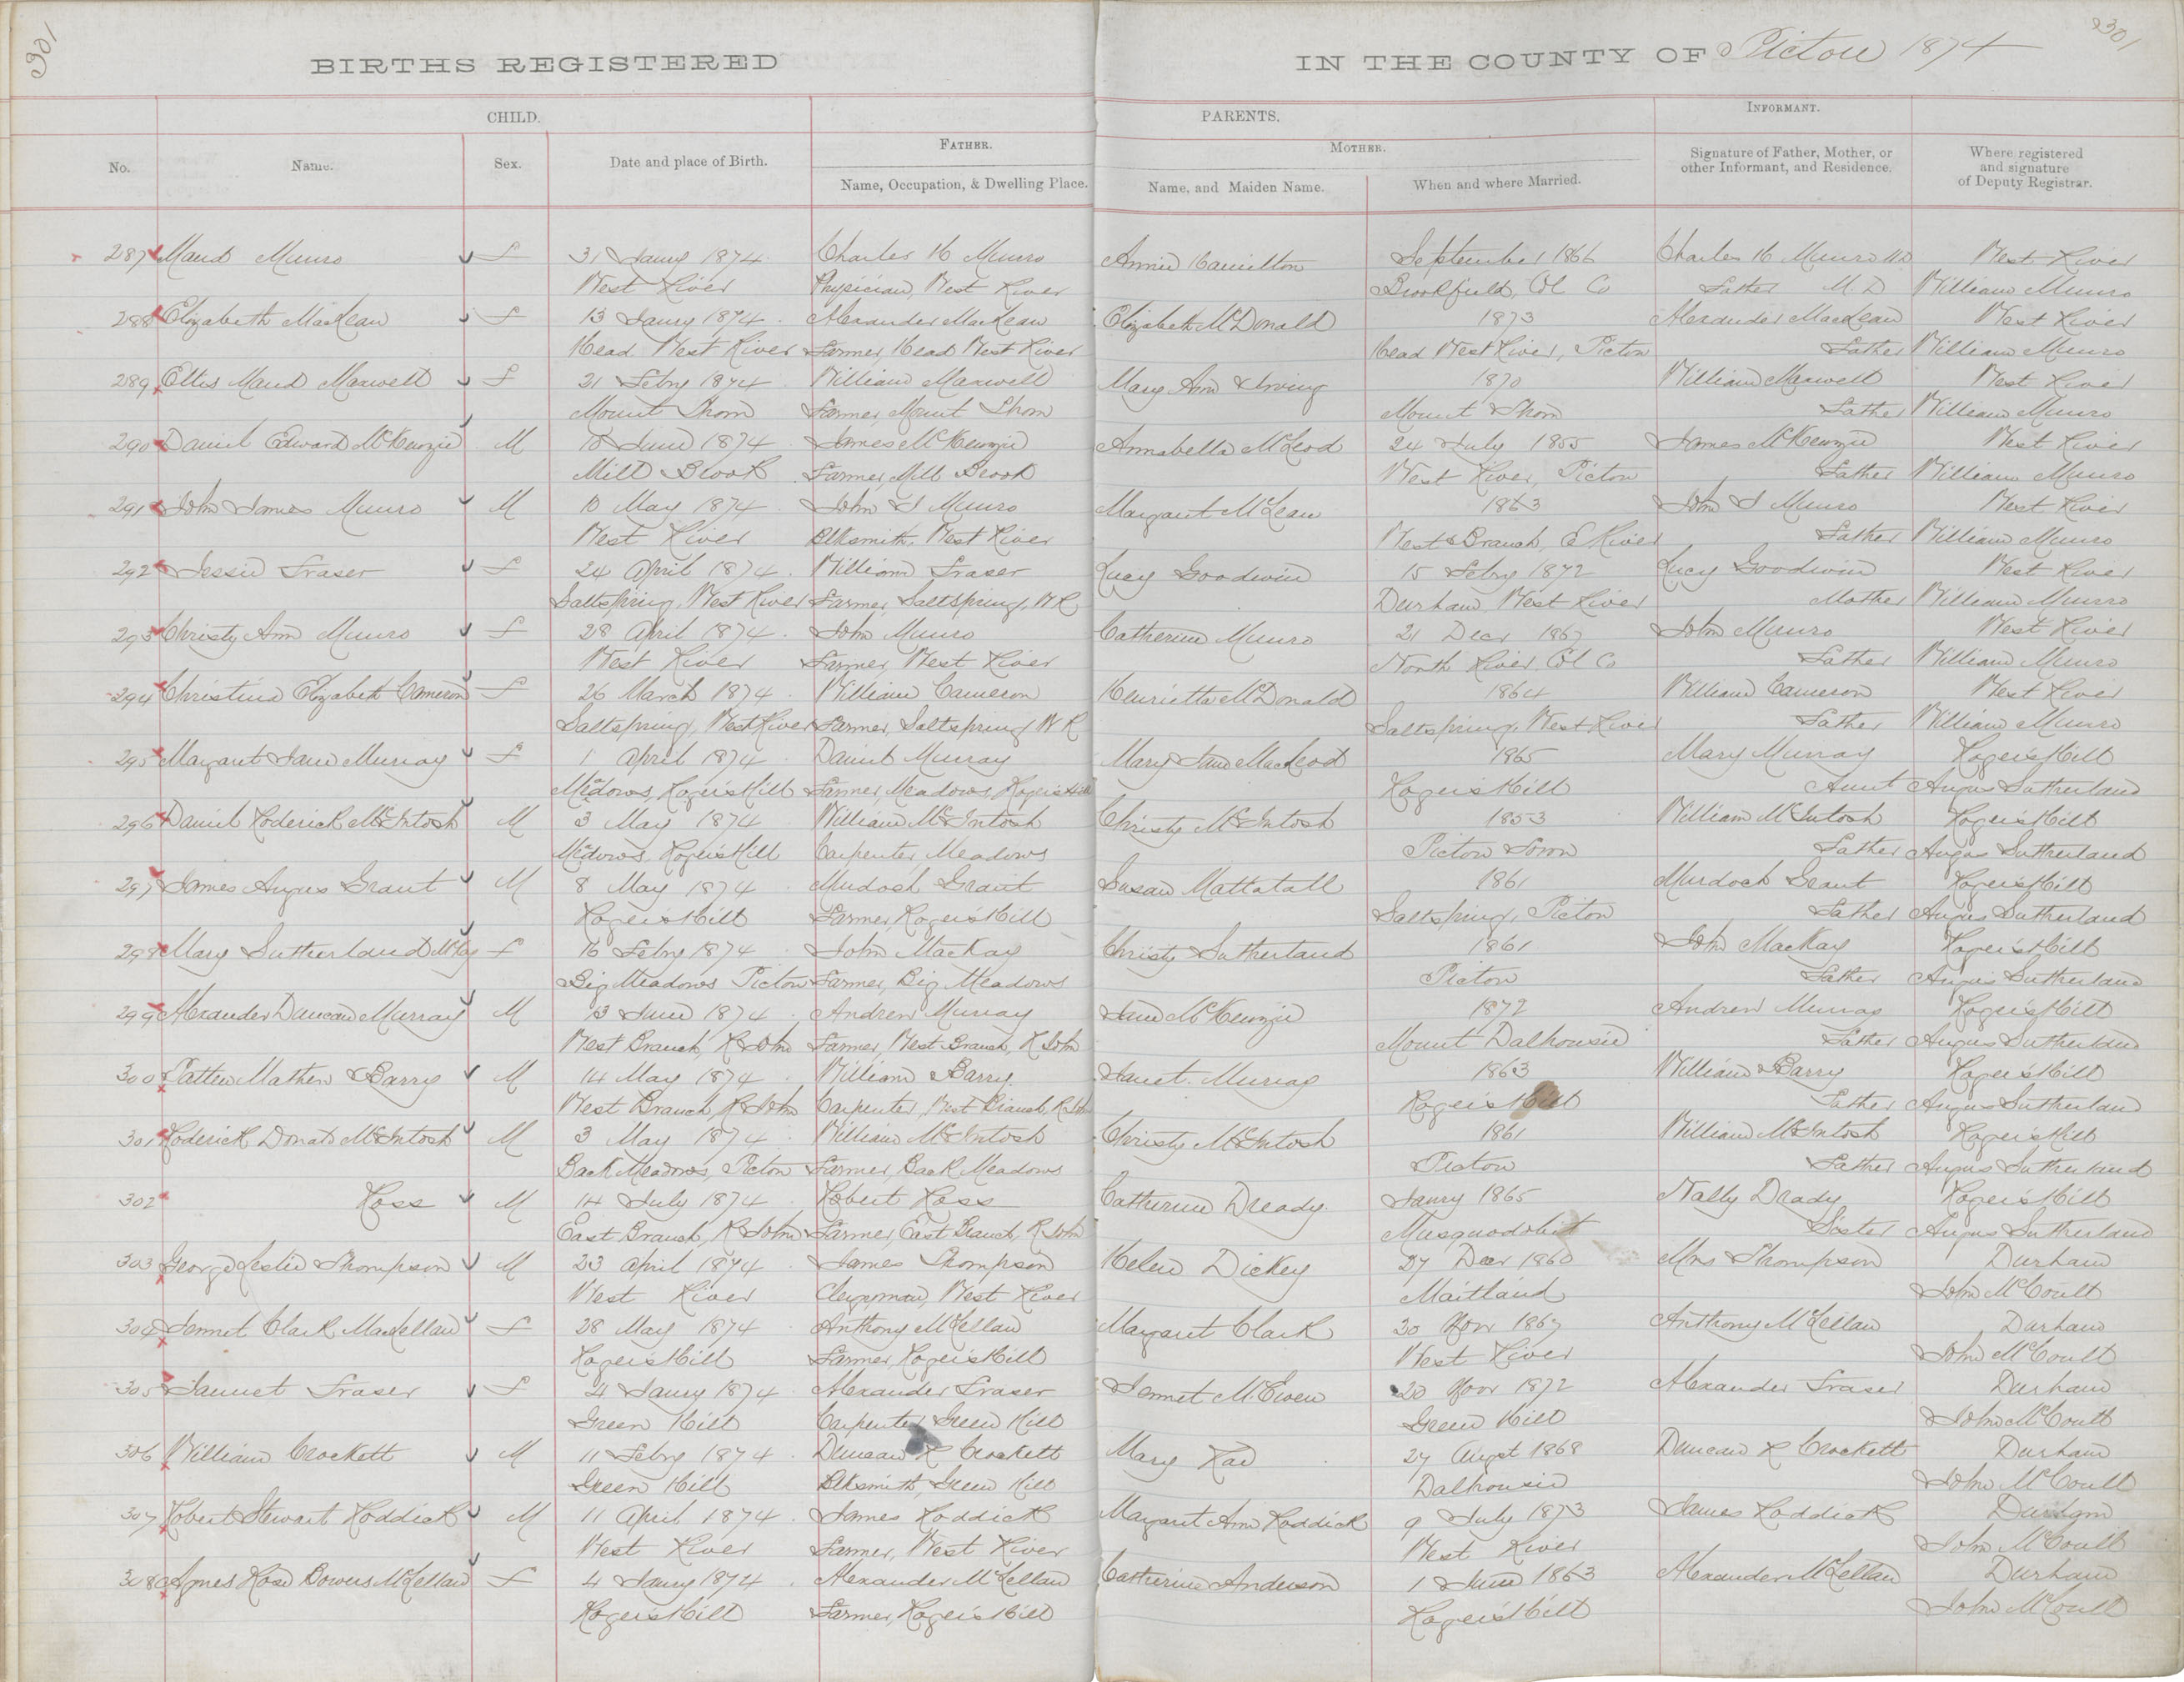 301
301
BIRTHS REGISTERED IN THE COUNTY OF Pictou 1874
CHILD. PARENTS. INFORMANT.
FATHER. MOTHER.
No. Name. Sex. Date and place of Birth. Name, Occupation, & Dwelling Place. Name, and Maiden Name. When and where Married. Signature of Father, Mother, or other Informant, and Residence. Where registered and signature of Deputy Registrar.
287 Maud Munro f 31 Jany 1874 Charles H Munro Annie Hamilton September 1866 Charles H Munro M.D West River
West River Physician, West River Brookfield, Col Co Father M D William Munro
288 Elizabeth MacLean f 13 Jany 1874 Alexander MacLean Elizabeth McDonald 1873 Alexander MacLean West River
Head West River Farmer, Head West River Head West River, Picton Father William Munro
289 Maud Maxwell f 21 Febry 1874 William Maxwell Mary Ann Irving 1870 William Maxwell West River
Mount Thom Farmer, Mount Thom Mount Thom Father William Munro
290 Daniel Edward McKenzie M June 1874 James McKenzie Annabella McLeod 24 July 1855 James McKenzie West River
Mill Brook Farmer, Mill Brook West River, Picton Father William Munro
291 John James Munro M 10 May 1874 John S Munro Margaret McLean 1863 John S Munro West River
West River Blksmith, West River West Branch, E River Father William Munro
292 Jessie Fraser f 24 April 1874 William Fraser Lucy Goodwin 15 Febry 1872 Lucy Goodwin West River
Saltspring, West River Farmer, Saltspring, W R Durham, West River Mother William Munro
293 Christy Ann Munro f 28 April 1874 John Munro Catherine Munro 21 Decr 1867 John Munro West River
West River Farmer, West River North River, Col Co Father William Munro
294 Christina Elizabeth Cameron f 26 March 1874 William Cameron Henrietta McDonald 1864 William Cameron West River
Saltspring, West River Farmer, Saltspring W R Saltspring, West River Father William Munro
295 Margaret Jane Murray f 1 April 1874 Daniel Murray Mary Jane MacLeod 1865 Mary Murray Roger's Hill
Medows, Roger's Hill Farmer, Meadows, Roger's Hill Roger's Hill Aunt Angus Sutherland
296 Daniel Roderick McIntosh M 3 May 1874 William McIntosh Christy McIntosh 1853 William McIntosh Roger's Hill
Medows, Roger's Hill Carpenter, Meadows Picton Town Father Angus Sutherland
297 James Angus Grant M 8 May 1874 Mudoch Grant Susan Mattatall 1861 Murdoch Grant Roger's Hill
Roger's Hill Farmer, Roger's Hill Saltspring, Picton Father Angus Sutherland
298 Mary Sutherland McKay f 16 Febry 1874 John MacKay Christy Sutherland 1861 John MacKay Roger's Hill
Big Meadows Picton Farmer, Big Meadows Picton Father Angus Sutherland
299 Alexander Duncan Murray M 13 June 1874 Andrew Murray Jane McKenzie 1872 Andrew Murray Roger's Hill
West Branch, R John Farmer, West Branch, R John Mount Dalhousie Father Angus Sutherland
300 Mathew Barry M 14 May 1874 William Barry Janet Murray 1863 William Barry Roger's Hill
West Branch, R John Carpenter, West Branch, R John Roger's Hill Father Angus Sutherland
301 Roderick Donald McIntosh M 3 May 1874 William McIntosh Christy McIntosh 1861 William McIntosh Roger's Hill
Back Meadows, Picton Farmer, Back Meadows Picton Father Angus Sutherland
302 Ross M 14 July 1874 Robert Ross Catherine Dready Jany 1865 Nally Drady Roger's Hill
East Branch, R John Farmer, East Branch, R John Musquodobit Sister Angus Sutherland
303 George Leslie Thompson M 23 April 1874 James Thompson Helen Dickey 27 Decr 1860 Mrs Thompson Durham
West River Clergyman, West River Maitland John McCoull
304 Jennet Clark MacLellan f 28 May 1874 Anthony McLellan Margaret Clark 30 Novr 1867 Anthony McLellan Durham
Roger's Hill Farmer, Roger's Hill West River John McCoull
305 Jannet Fraser f 4 Jany 1874 Alexander Fraser Jennet McEwen 20 Novr 1872 Alexander Fraser Durham
Green Hill Carpenter, Green Hill Green Hill John McCoull
306 William Crockett M 11 Febry 1874 Duncan R Crockett Mary Rae 27 Augst 1868 Duncan R Crockett Durham
Green Hill Blksmith, Green Hill Dalhousie John McCoull
307 Robert Stewart Roddick M 11 April 1874 James Roddick Margaret Ann Roddick 9 July 1873 James Roddick Durham
West River Farmer, West River West River John McCoull
308 Agnes Rose Bowers McLellan f 4 Jany 1874 Alexander McLellan Catherine Anderson 1 June 1863 Alexander McLellan Durham
Roger's Hill Farmer, Roger's Hill Roger's Hill John McCoull